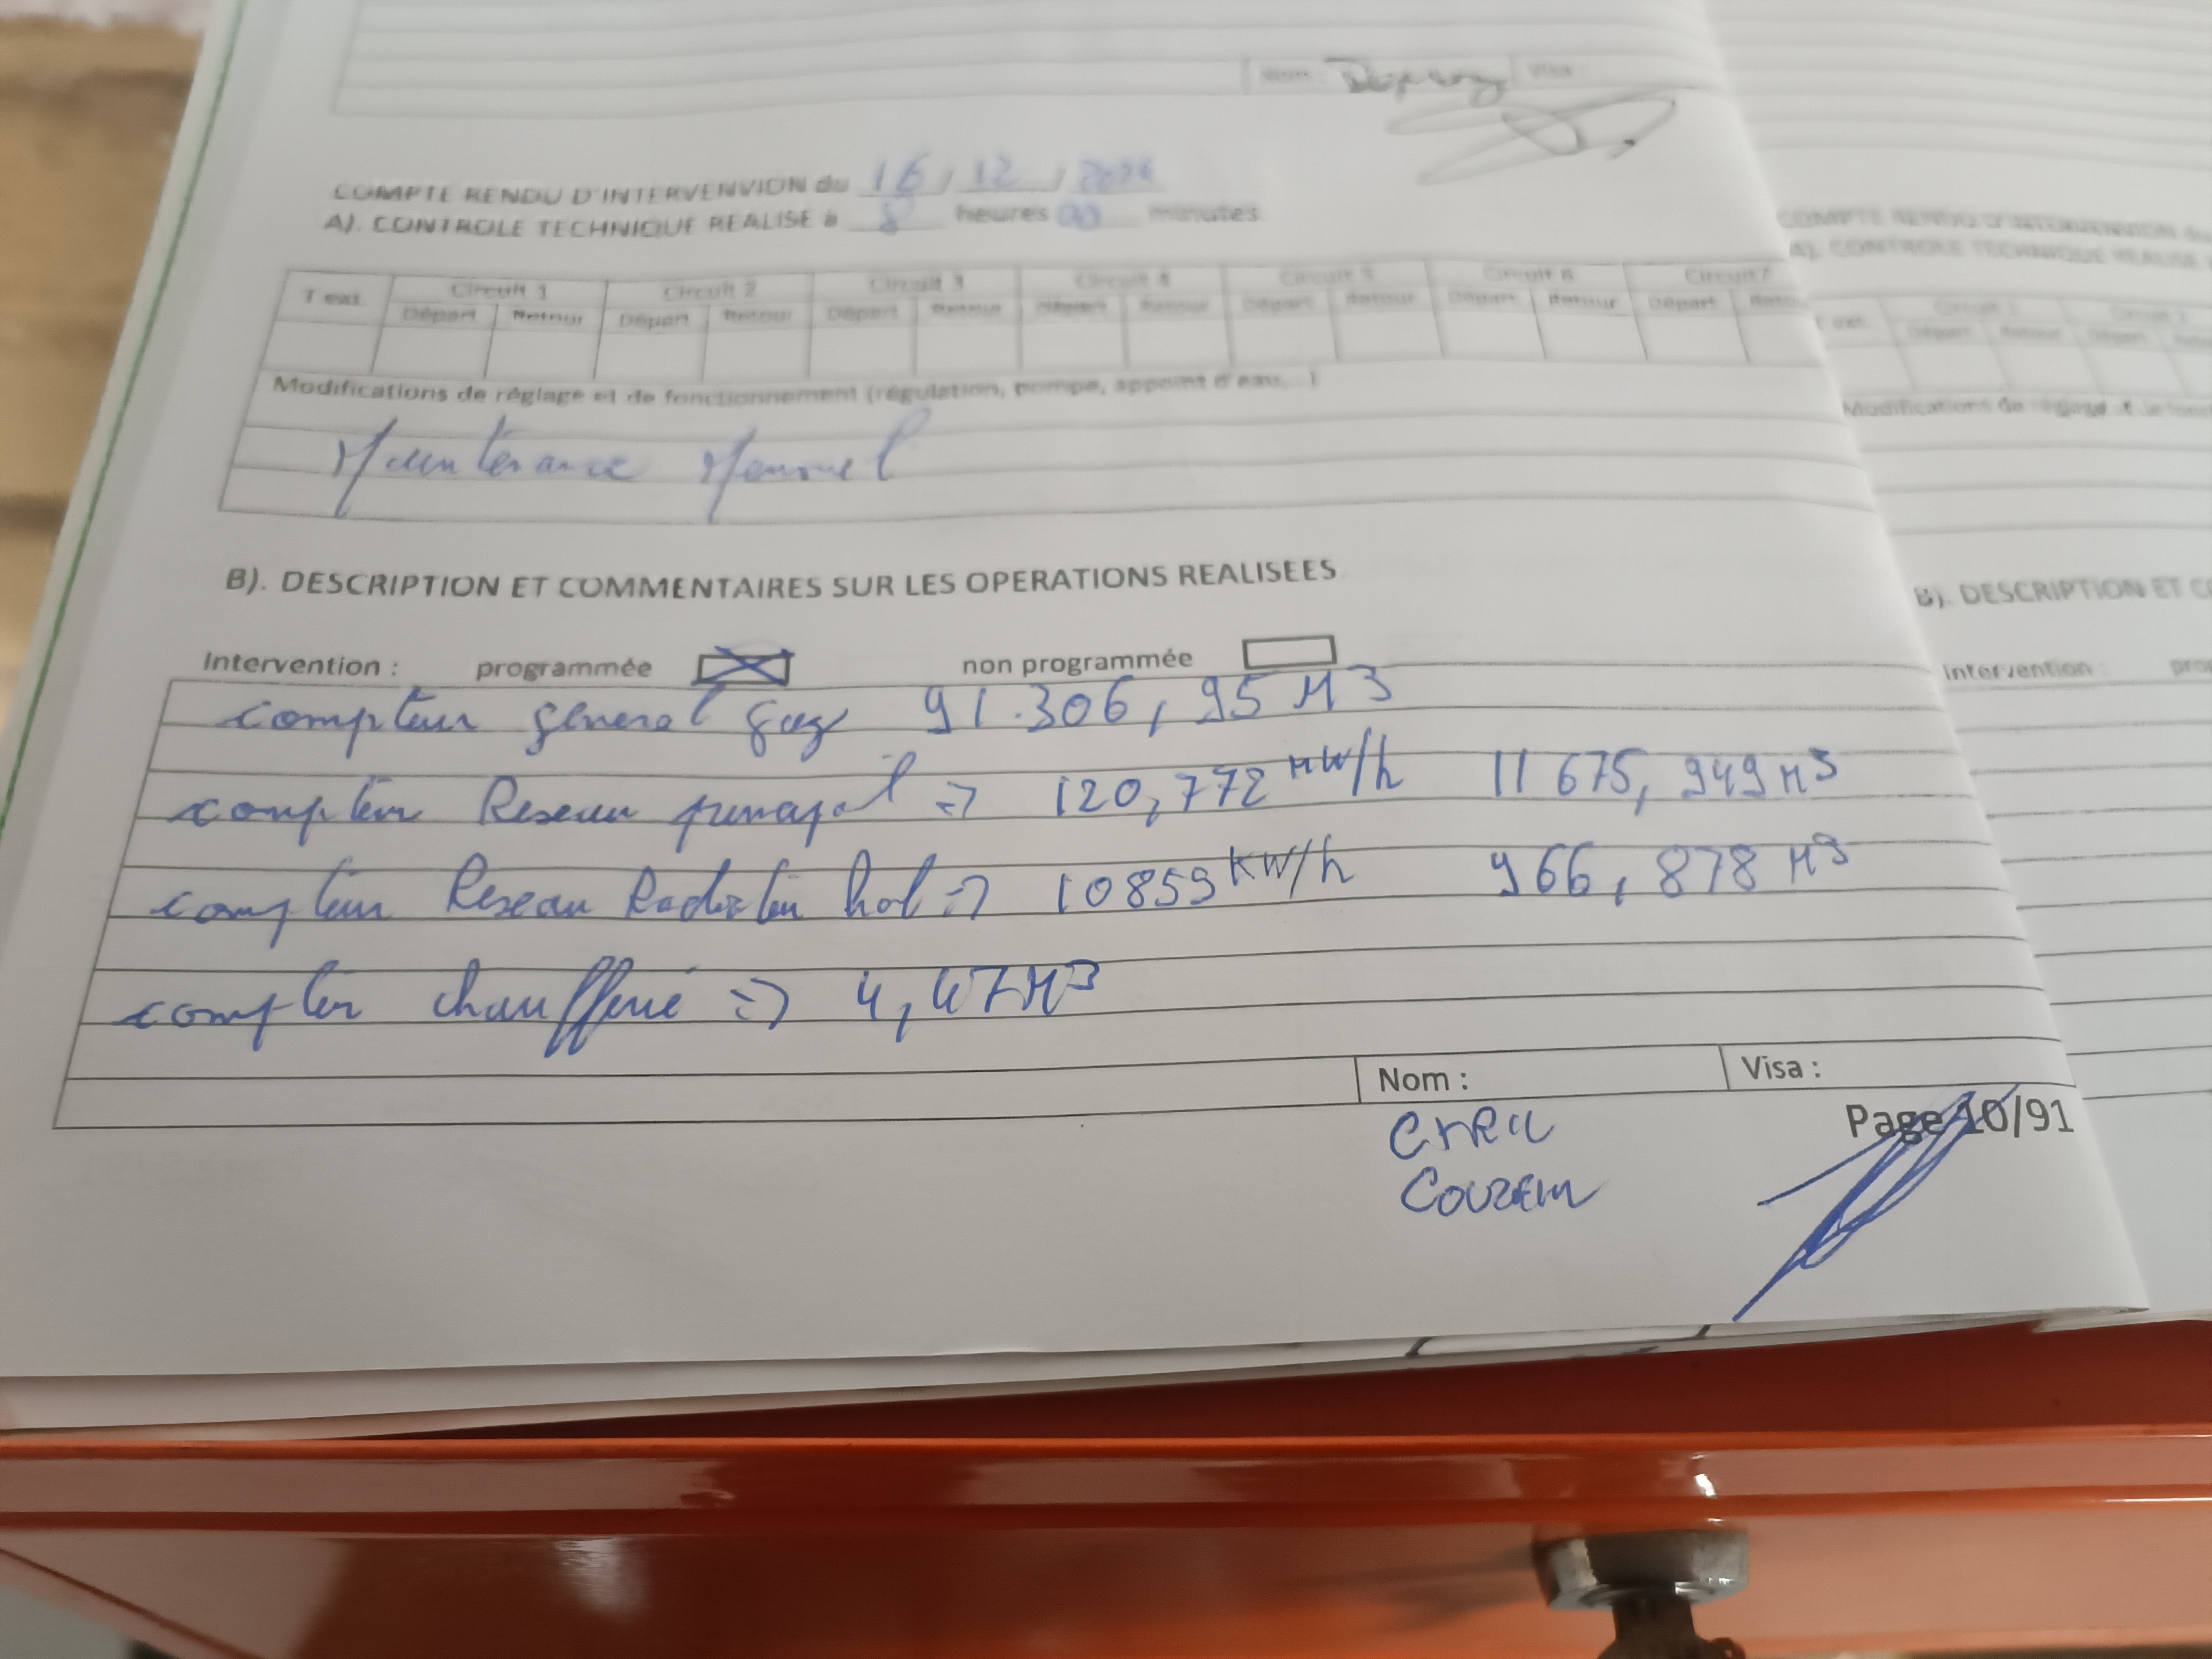 Nom : Visa :
COMPTE RENDU D'INTERVENVION du 16 / 12 / 2024
A). CONTROLE TECHNIQUE REALISE à 8 heures 00 minutes
T ext. Circuit 1 Circuit 2 Circuit 3 Circuit 4 Circuit 5 Circuit 6 Circuit7
Départ Retour Départ Retour Départ Retour Départ Retour Départ Retour Départ Retour Départ Retou
Modifications de réglage et de fonctionnement (régulation, pompe, appoint d'eau,...)
Maintenance Mensuel
B). DESCRIPTION ET COMMENTAIRES SUR LES OPERATIONS REALISEES
Intervention : programmée non programmée
compteur géneral gaz 91.306,95 M3
compteur Reseau principal => 120,772 MW/h 11 675,949 M3
compteur Reseau Radiateur hal => 10859 KW/h 966,878 M3
compteur chaufferie => 4,47 M3
Nom : Visa :
Page 10/91
COMPTE RENDU D'INTERVENVION du
A). CONTROLE TECHNIQUE REALISE
T ext. Circuit 1 Circuit 2
Départ Retour Départ
Modifications de réglage et de fonc
B). DESCRIPTION ET CO
Intervention : pro